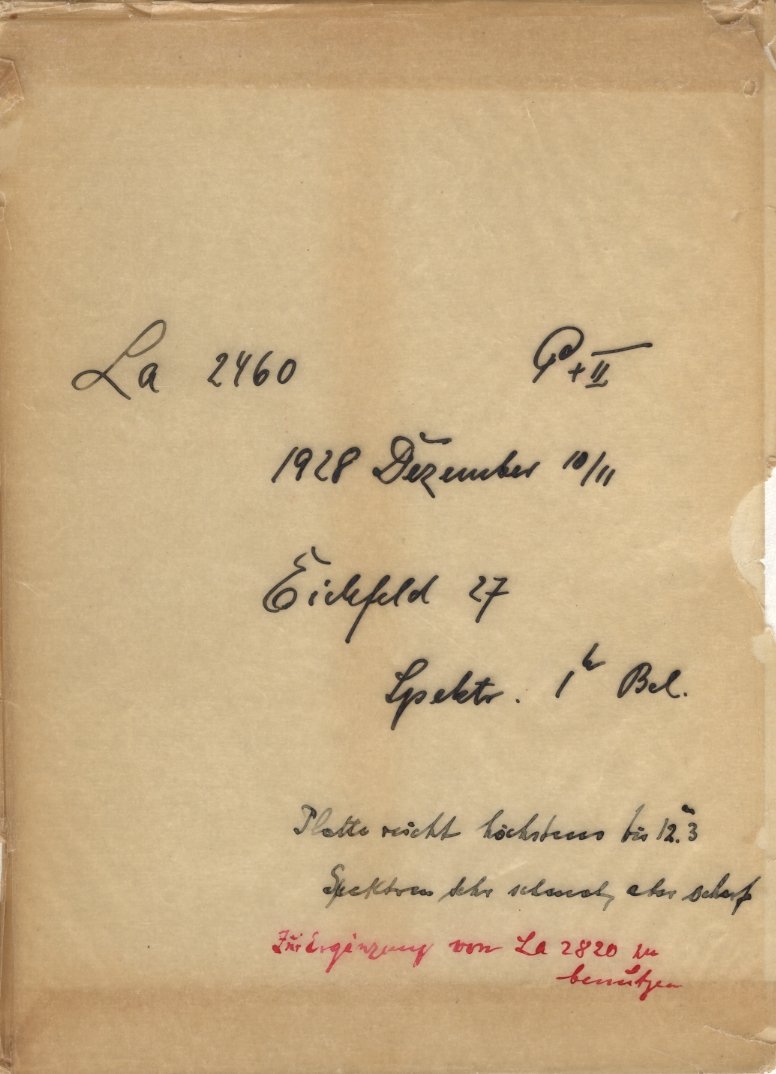 La 2460 P + II
1928 Dezember 10/11
Eichfeld 27
Spektr. 1h Bel.
Platte reicht höchstens bis 12.m3
Spektren sehr schmal, aber scharf
Zur Ergänzung von La 2820 zu
benützen